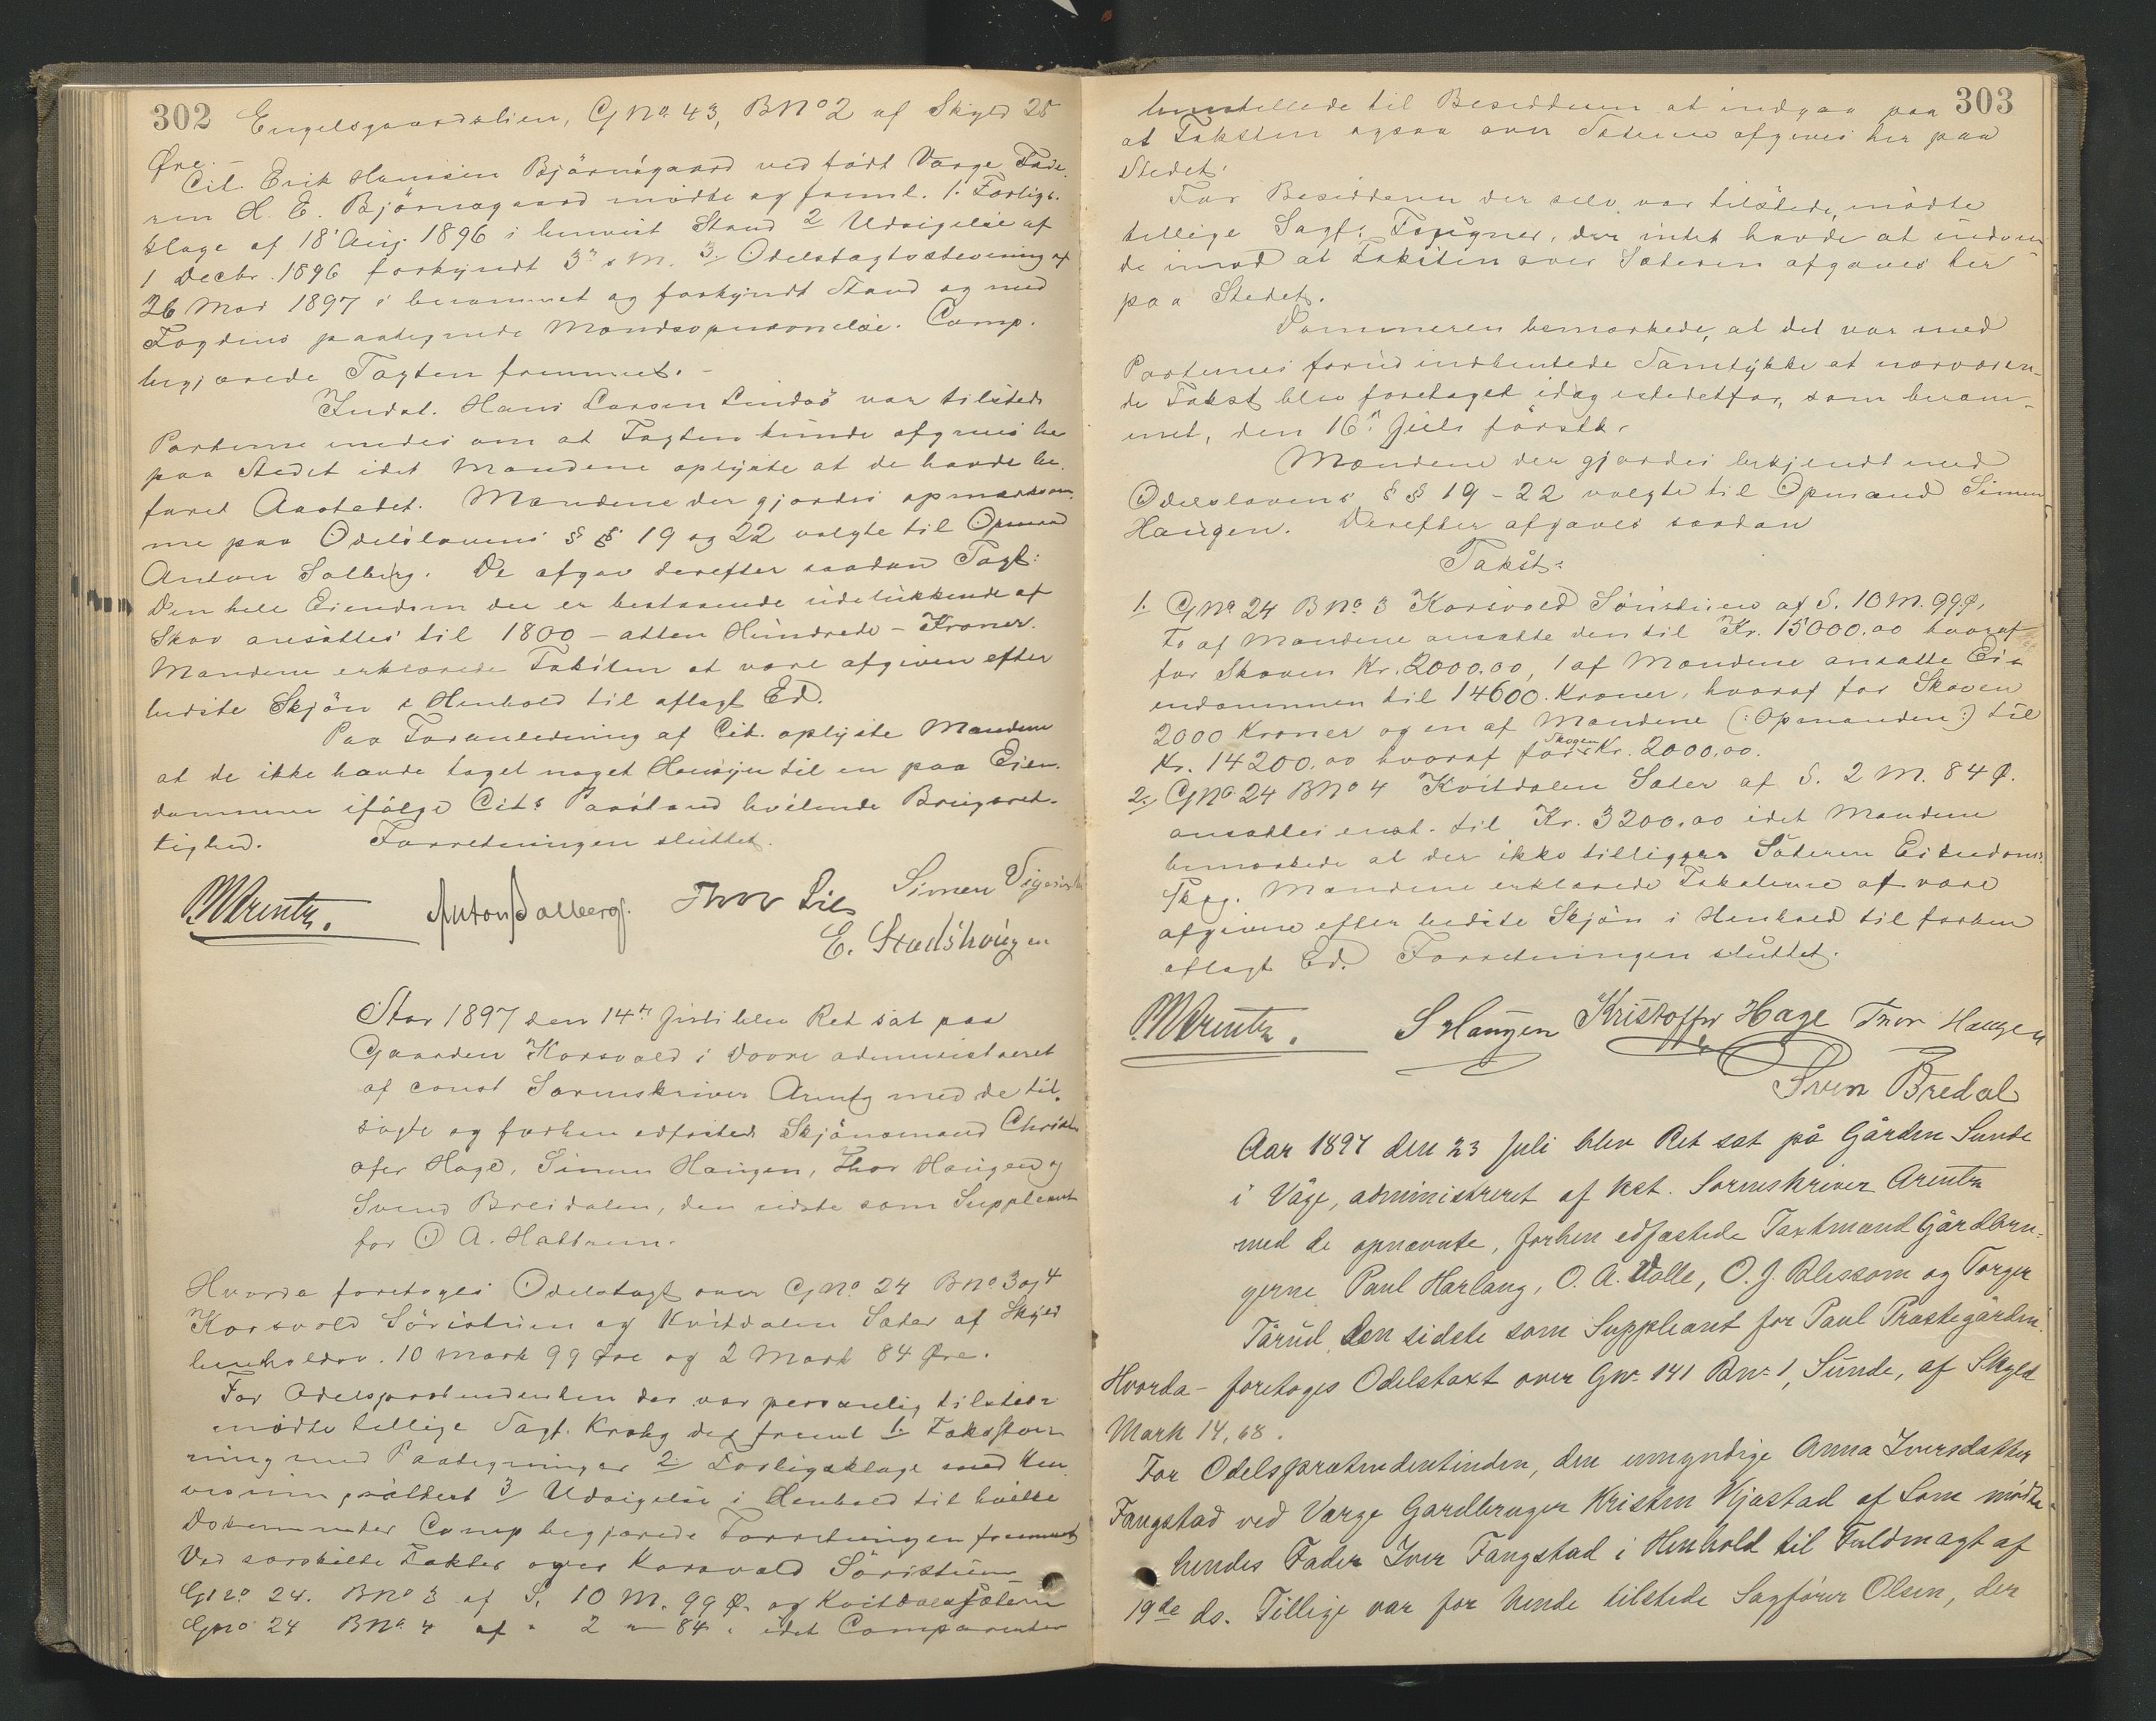 302
Engelsgaardslien, GNo. 43, BNo 2 af Skyld 25
Øre. -
Cit. Erik Hansen Bjørnsgaard ved født Værge Fade-
ren H. E. Bjørnsgaard mødte og freml. 1. Forligs-
klage af 18 Aug. 1896 i henvist Stand 2 Udsigelse af
1 Decbr. 1896 forkyndt 3die s. M. 3/ Odelstagtstevning af
26 Mai 1897 i berammet og forkyndt Stand og med
Fogdens paategnede Mandsopnævnelse. Comp.
begjærede Tagten fremmet. -
Indst. Hans Larsen Lindsø var tilstede
Parterne enedes om at Tagten kunde afgives her
paa Stedet idet Mændene oplyste at de havde be-
faret Aastedet. Mændene der gjordes opmærksom-
me paa Odelslovens § § 19 og 22 valgte til Opmand
Anton Solberg. De afgav derefter saadan Tagt:
Den hele Eiendom der er bestaaende udelukkende af
Skov ansattes til 1800 - atten Hundrede - Kroner.
Mændene erklærede Taksten at være afgiven efter
bedste Skjøn i Henhold til aflagt Ed.
Paa Foranledning af Cit. oplyste Mændene
at de ikke havde taget noget Hensyn til en paa Eien-
dommen ifølge Cits Paastand hvilende Brugsret-
tighed. Forretningen sluttet.
MArentz. Anton Solberg. Thor Lie Simen
E. Stadshøugen
Aar 1897 den 14de Juli blev Ret sat paa
Gaarden Korsvold i Dovre administreret
af const Sorenskriver Arentz med de til-
sagte og forhen edfæstede Skjønsmænd Christ-
ofer Hage, Simen Haugen, Thor Haugen og
Svend Breidalen, den sidste som Suppleant
for O A. Hattrem.
Hvorda foretoges Odelstagt over GNo. 24 BNo 3 og 4
Korsvold Søristuen og Kvitdalen Sæter af Skyld
henholdsv. 10 Mark 99 Øre og 2 Mark 84 Øre.
For Odelsprætendenten der var personlig tilstede
mødte tillige Sagf. Krohg der freml 1. Takststev-
ning med Paategninger 2/ Forligsklage med Hen-
visning, 3/ Udsigelse i Henhold til hvilke
Dokumenter Comp begjærede Forretningen fremmet
Ved særskilte Takster over Korsvold Søristuen
GNo 24. BNo 3 af S. 10 M. 99 Ø. og Kvitdalssæteren
GNo 24 BNo 4 af " 2 " 84 " idet Comparenten
303
henstillede til Besidderen at indgaa paa
at Taksten ogsaa over Sæteren afgives her paa
Stedet.
For Besidderen der selv var tilstede, mødte
tillige Sagf. Fougner, der intet havde at indven-
de imod at Taksten over Sæteren afgaves her
paa Stedet.
Dommeren bemærkede, at det var med
Parternes forud indhentede Samtykke at nærværen-
de Takst blev foretaget idag istedetfor, som beram-
met, den 16de Juli førstk.
Mændene der gjordes bekjendt med
Odelslovens § § 19 - 22 valgte til Opmand Simen
Haugen. Derefter afgaves saadan
Takst:
1. GNo 24 BNo. 3 Korsvold Søristuen af S. 10 M. 99 Ø,
To af Mændene ansatte den til Kr. 15000.00 hvoraf
for Skoven Kr. 2000.00, 1 af Mændene ansatte Ei-
endommen til 14600 Kroner, hvoraf for Skoven
2000 Kroner og en af Mændene (: Opmanden :) til
Kr. 14200.00 hvoraf for Skogen Kr. 2000.00.
2. GNo. 24 BNo 4 Kvitdalen Sæter af S. 2 M. 84 Ø.
ansattes enst. til Kr. 3200.00 idet Mændene
bemærkede at der ikke tilligger Sæteren Eiendoms-
Skog. Mændene erklærede Taksterne at være
afgivne efter bedste Skjøn i Henhold til forhen
aflagt Ed. Forretningen sluttet.
MArentz. S Haugen Kristoffer Hage Thor Haugen
Sven Bredal
Aar 1897 den 23 Juli blev Ret sat på Gården Sunde
i Våge, administreret af kst. Sorenskriver Arentz
med de opnævnte, forhen edfæstede Taxtmænd Gårdbru-
gerne Paul Harlang, O. A. Valle, O. J. Blessom og Torger
Tårud, den sidste som Suppleant for Paul Præstegården.
Hvorda - foretoges Odelstaxt over Gnr. 141 Bnr. 1, Sunde, af Skyld
Mark 14,68.
For Odelsprætendentinden, den umyndige Anna Iversdatter
Fangstad ved Værge Gardbruger Kristen Kjæstad af Lom mødte
hendes Fader Iver Fangstad i Henhold til Fuldmagt af
19de ds. Tillige var for hende tilstede Sagfører Olsen, der